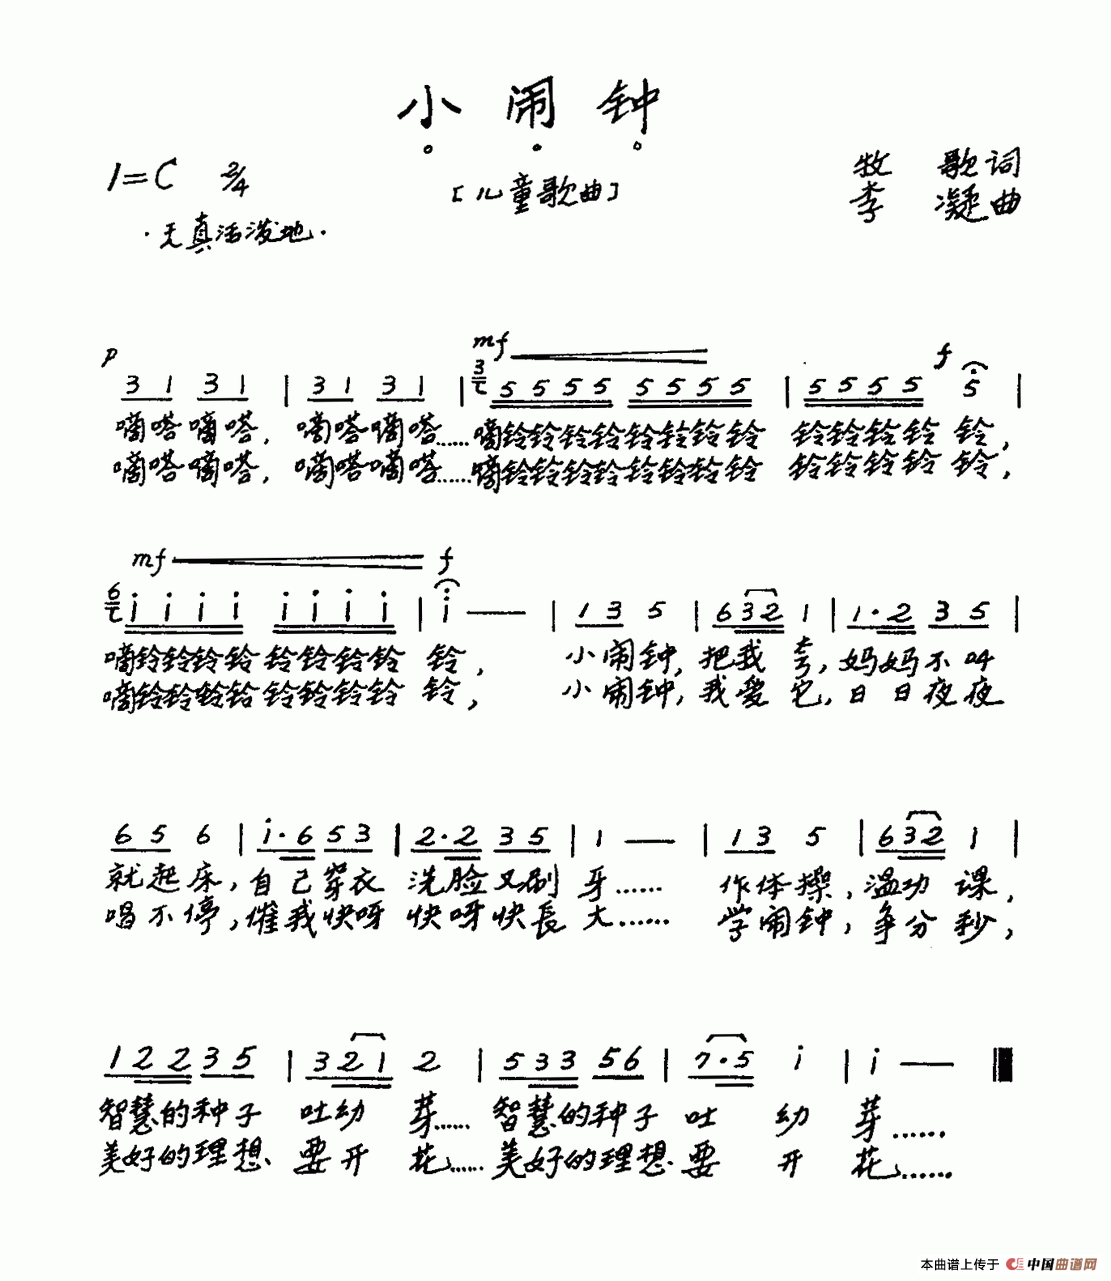 小闹钟
1=C 2/4
［儿童歌曲］
牧 歌词
李 凝曲
·天真活泼地·
p mf f
3 1 3 1 | 3 1 3 1 | 5 5 5 5 5 5 5 5 | 5 5 5 5 5 |
嘀嗒嘀嗒，嘀嗒嘀嗒……嘀铃铃铃铃铃铃铃铃 铃铃铃铃铃，
嘀嗒嘀嗒，嘀嗒嘀嗒……嘀铃铃铃铃铃铃铃铃 铃铃铃铃铃，
mf f
i i i i i i i i | i — | 1 3 5 | 6 3 2 1 | 1·2 3 5 |
嘀铃铃铃铃铃铃铃铃 铃，小闹钟，把我夸，妈妈不叫
嘀铃铃铃铃铃铃铃铃 铃，小闹钟，我爱它，日日夜夜
6 5 6 | i·6 5 3 | 2·2 3 5 | 1 — | 1 3 5 | 6 3 2 1 |
就起床，自己穿衣 洗脸又刷牙…… 作体操，温功课，
唱不停，催我快呀 快呀快長大…… 学闹钟，争分秒，
1 2 2 3 5 | 3 2 1 2 | 5 3 3 5 6 | 7·5 i | i — |
智慧的种子 吐幼芽…… 智慧的种子 吐幼芽……
美好的理想、要开花…… 美好的理想·要开花……
本曲谱上传于 中国曲谱网